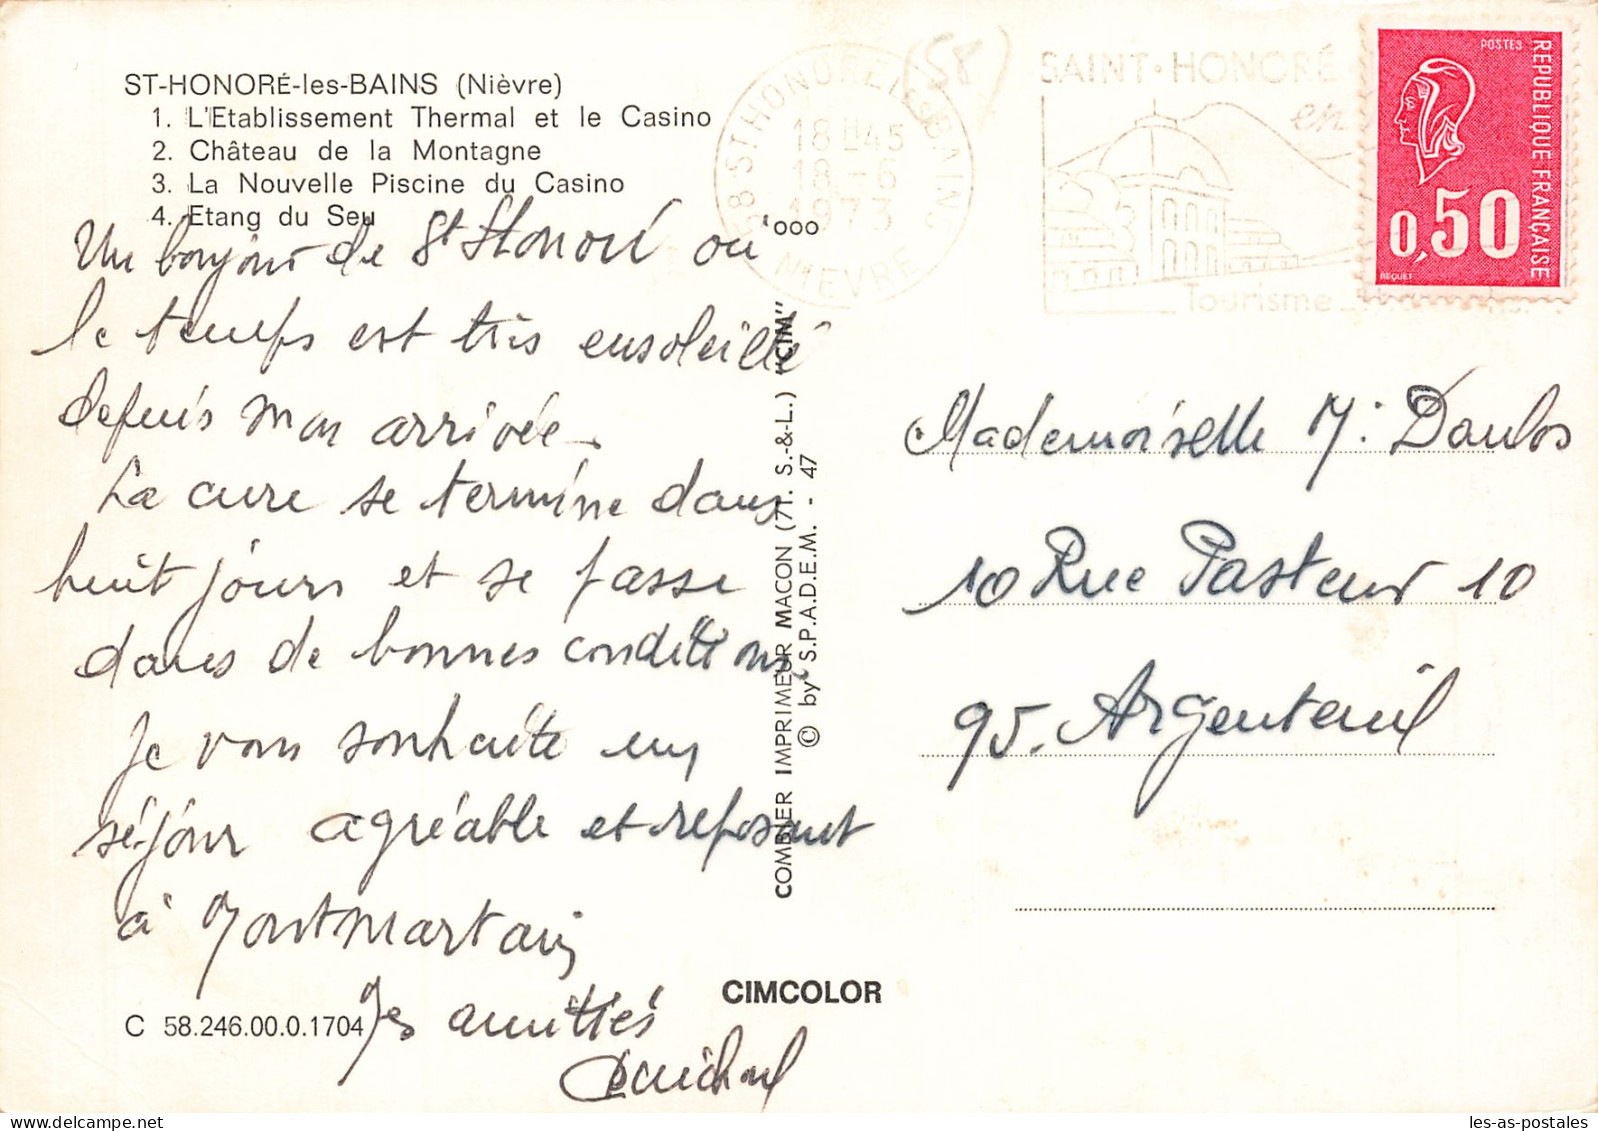 ST-HONORÉ-les-BAINS (Nièvre)
1. L'Etablissement Thermal et le Casino
2. Château de la Montagne
3. La Nouvelle Piscine du Casino
4. Etang du Seu
Un bonjour de St Honoré où
le temps est très ensoleillé
depuis mon arrivée
La cure se termine dans
huit jours et se passe
dans de bonnes conditions
Je vous souhaite un
séjour agréable et reposant
à Montmartain
Mes amitiés
C 58.246.00.0.1704
CIMCOLOR
COMBIER IMPRIMEUR MACON (71. S.-&-L.) "CIM"
© by S.P.A.D.E.M. - 47
58 ST HONORE LES BAINS
18H45
18-6
1973
NIEVRE
(58)
SAINT-HONORÉ
en
Tourisme
POSTES
REPUBLIQUE FRANÇAISE
0,50
BEQUET
Mademoiselle M. Daulos
10 Rue Pasteur 10
95. Argenteuil
les-as-postales